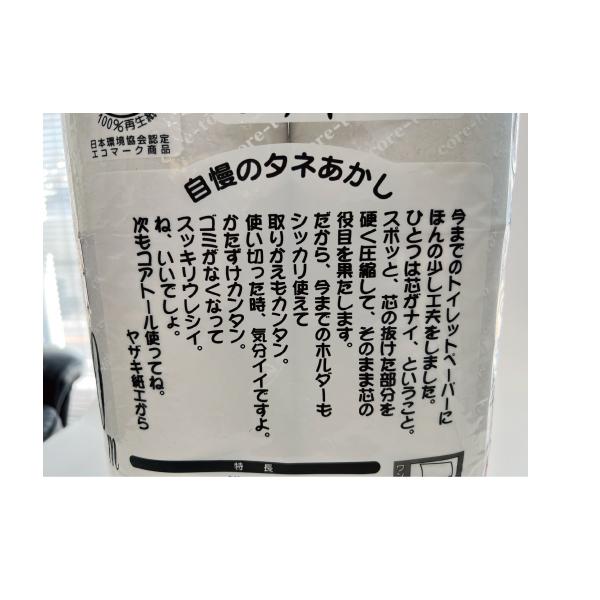 100%再生紙
日本環境協会認定
エコマーク商品
core-to
自慢のタネあかし
今までのトイレットペーパーに
ほんの少し工夫をしました。
ひとつは芯がナイ、ということ。
スポッと、芯の抜けた部分を
硬く圧縮して、そのまま芯の
役目を果たします。
だから、今までのホルダーも
シッカリ使えて
取りがえもカンタン。
使い切った時、気分イイですよ。
かたずけカンタン。
ゴミがなくなって
スッキリウレシイ。
ね、いいでしょ。
次もコアトール使ってね。
ヤザキ紙工から
特長
ワン
m